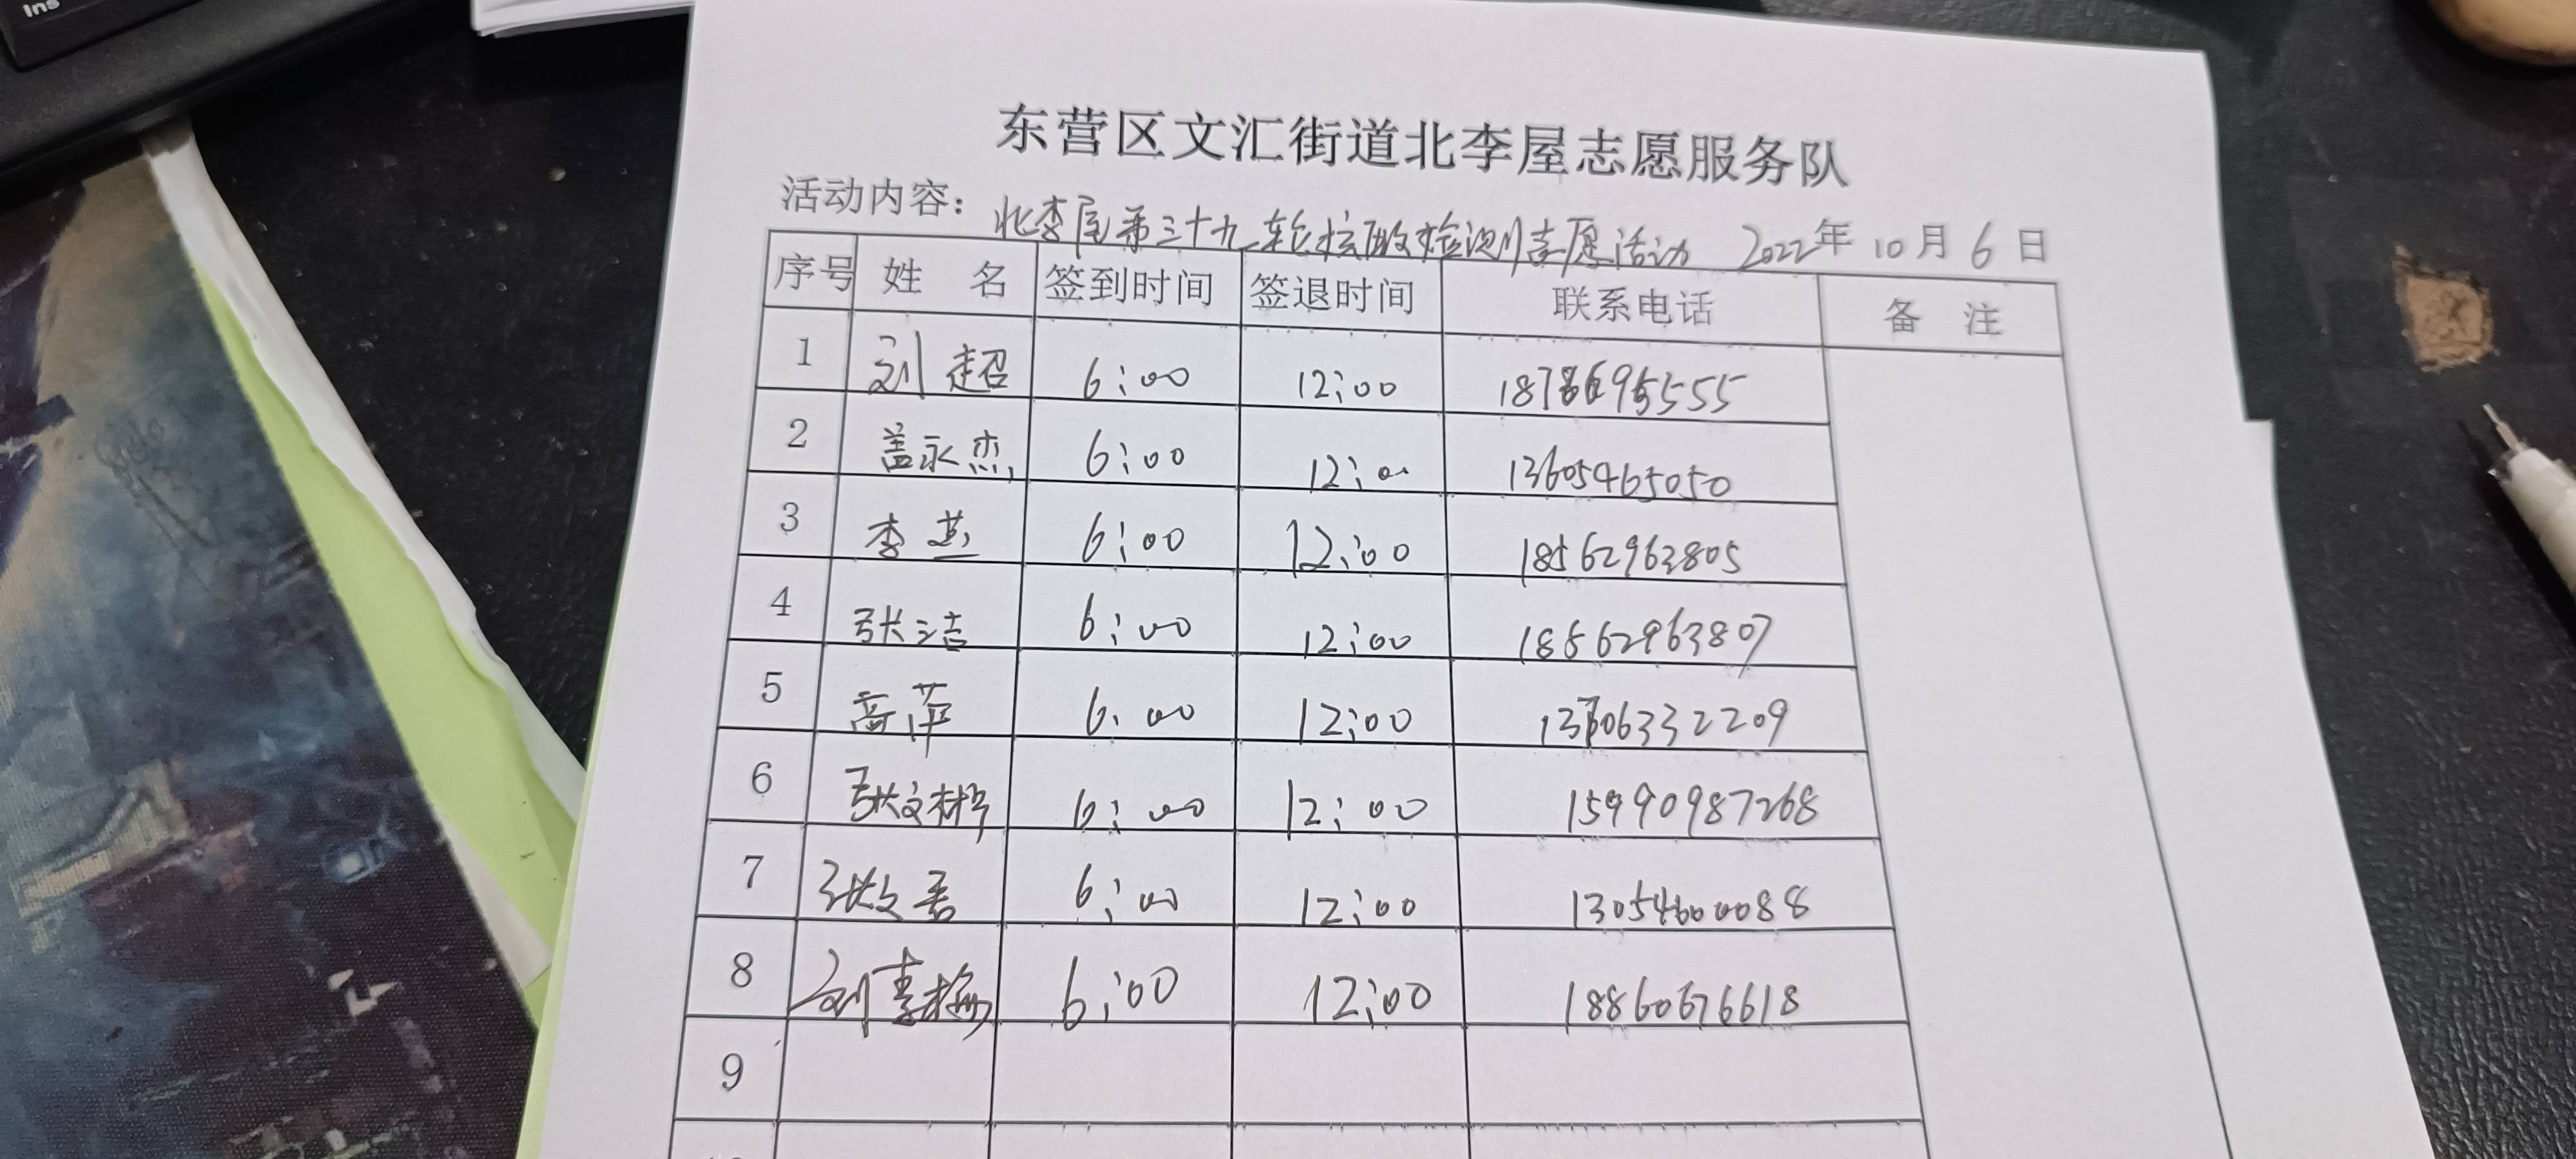 Ins
东营区文汇街道北李屋志愿服务队
活动内容：北李屋第三十九轮核酸检测志愿活动 2022年10月6日
序号 姓 名 签到时间 签退时间 联系电话 备 注
1 刘超 6:00 12:00
2 盖永杰 6:00 12:00 13605465050
3 李燕 6:00 12:00 18562963805
4 张洁 6:00 12:00 18562963807
5 高萍 6:00 12:00
6 张文梓 6:00 12:00 15990987268
7 6:00 12:00 13054600088
8 刘春梅 6:00 12:00 18860676618
9